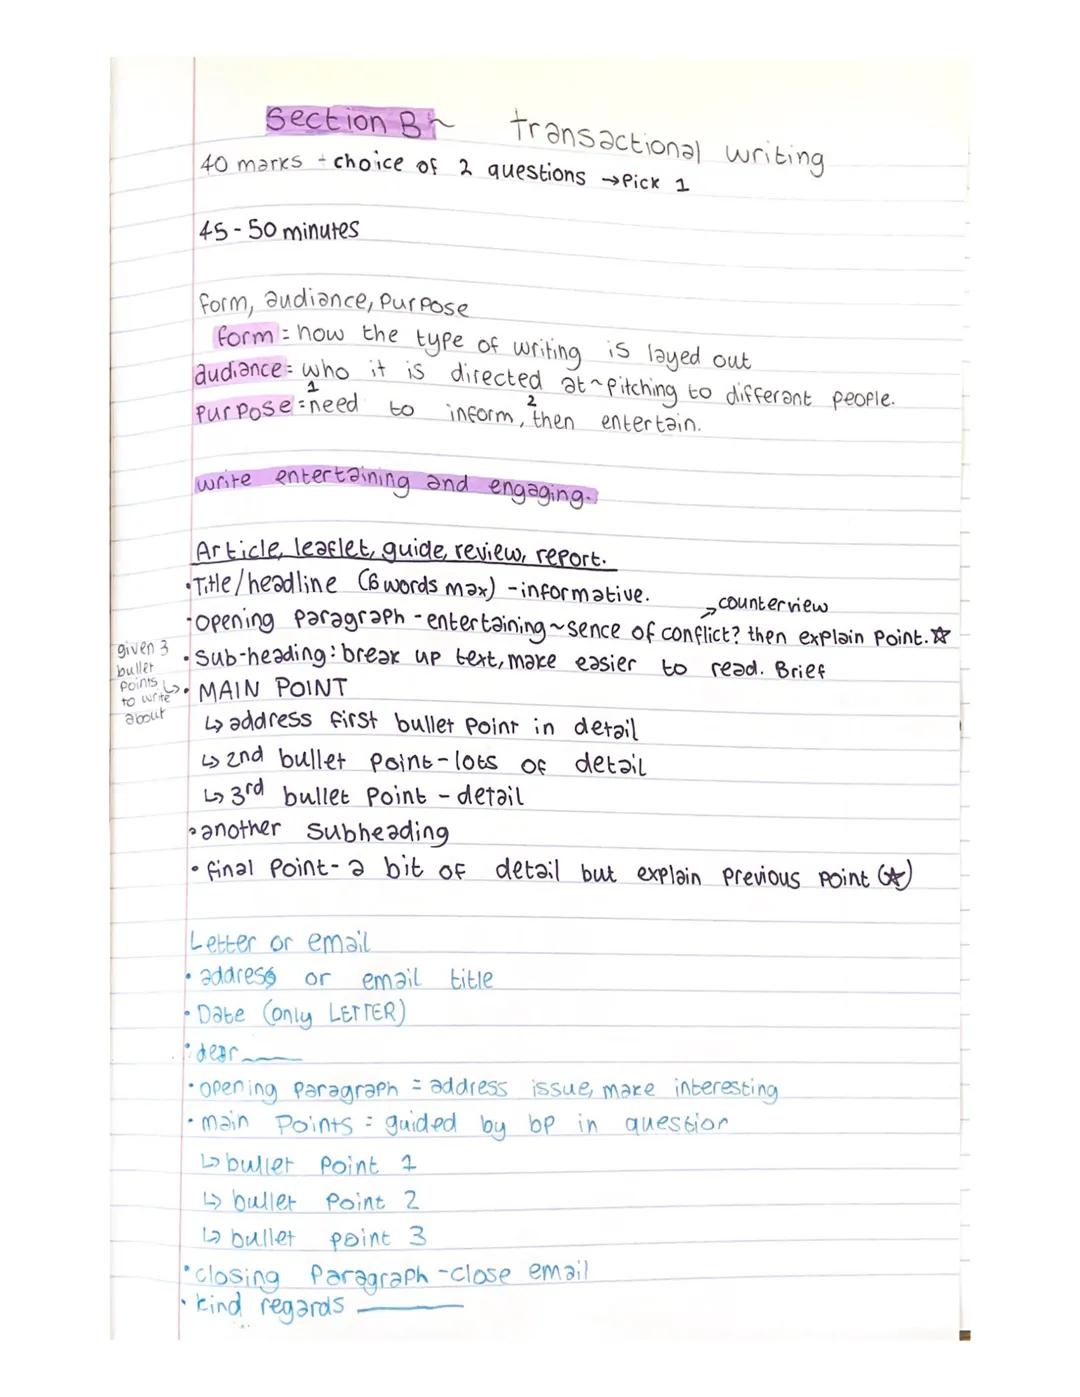 Section B ~ transactional writing
40 marks - choice of 2 questions → Pick 1
45 - 50 minutes
form, audiance, Purpose
form = how the type of writing is layed out
audiance = who it is directed at ~ pitching to differant people.
Purpose = 1 need to inform, 2 then entertain.
write entertaining and engaging.
Article, leaflet, guide, review, report.
• Title/headline (6 words max) - informative.
→ counterview
• opening paragraph - entertaining ~ sence of conflict? then explain point. ☆
• Sub-heading: break up text, make easier to read. Brief
given 3 bullet points to write about ↳
• MAIN POINT
↳ address first bullet point in detail
↳ 2nd bullet point - lots of detail
↳ 3rd bullet point - detail
• another subheading
• final point - a bit of detail but explain previous point (☆)
Letter or email
• address or email title
• Date (only LETTER)
• dear ____
• opening paragraph = address issue, make interesting
• main points = guided by bp in question
↳ bullet point 1
↳ bullet point 2
↳ bullet point 3
• closing paragraph - close email
• kind regards ____